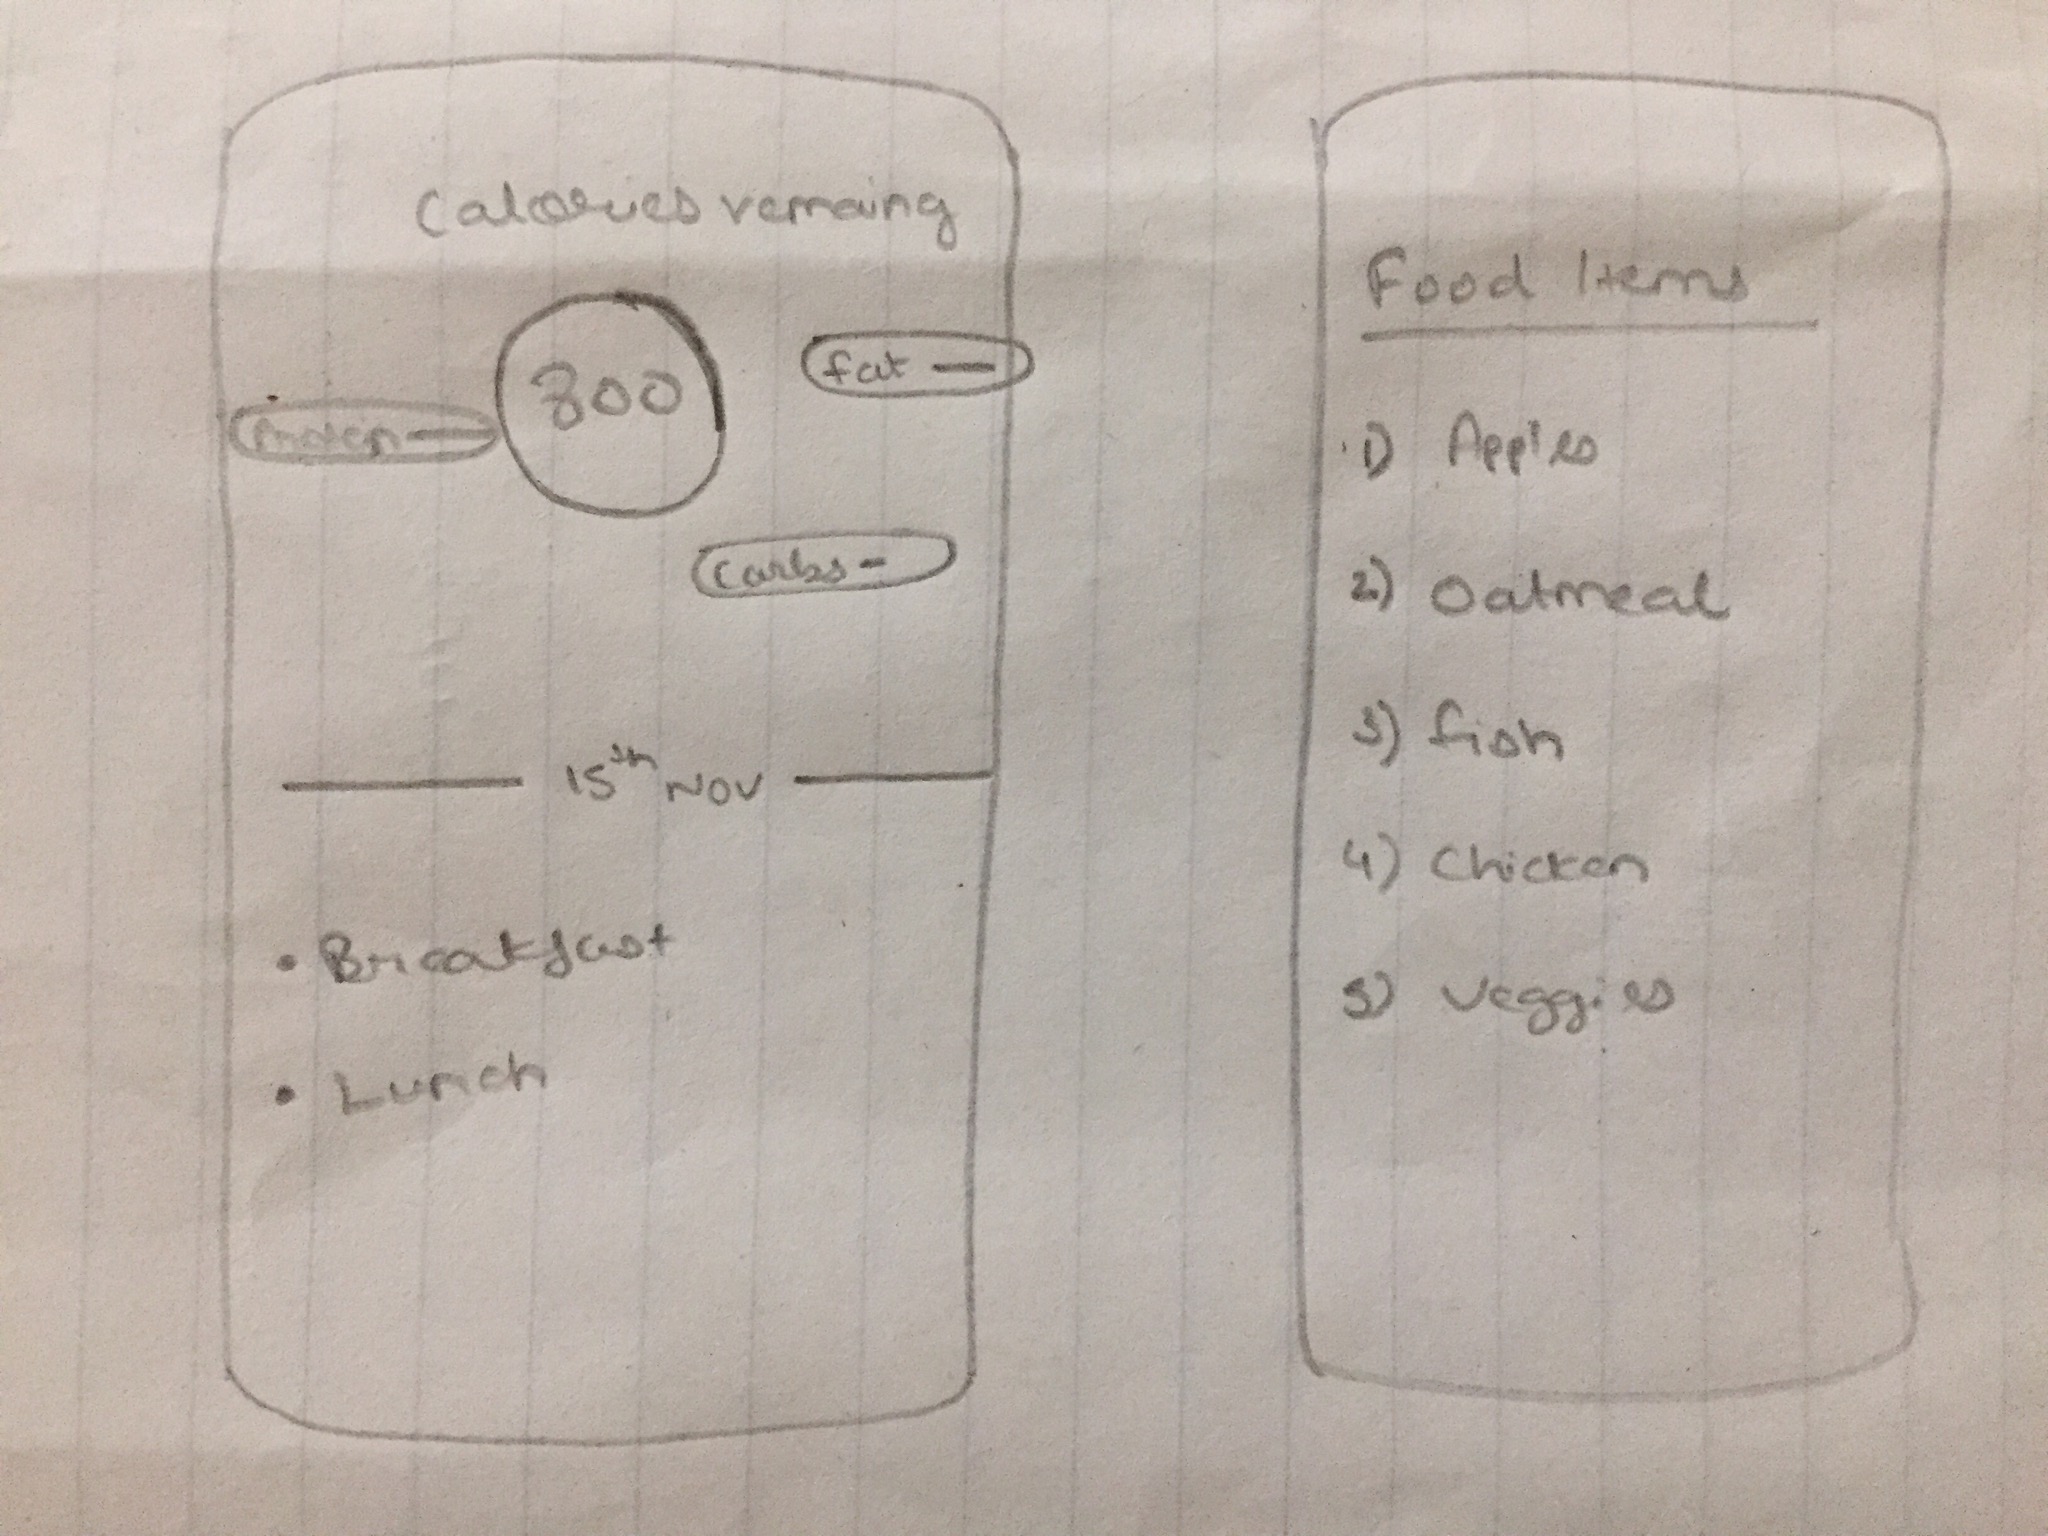 Calories remaing
800
fat —
Protein —
Carbs -
15th NOV
• Breakfast
• Lunch
Food Items
1) Apples
2) Oatmeal
3) fish
4) Chicken
5) Veggies